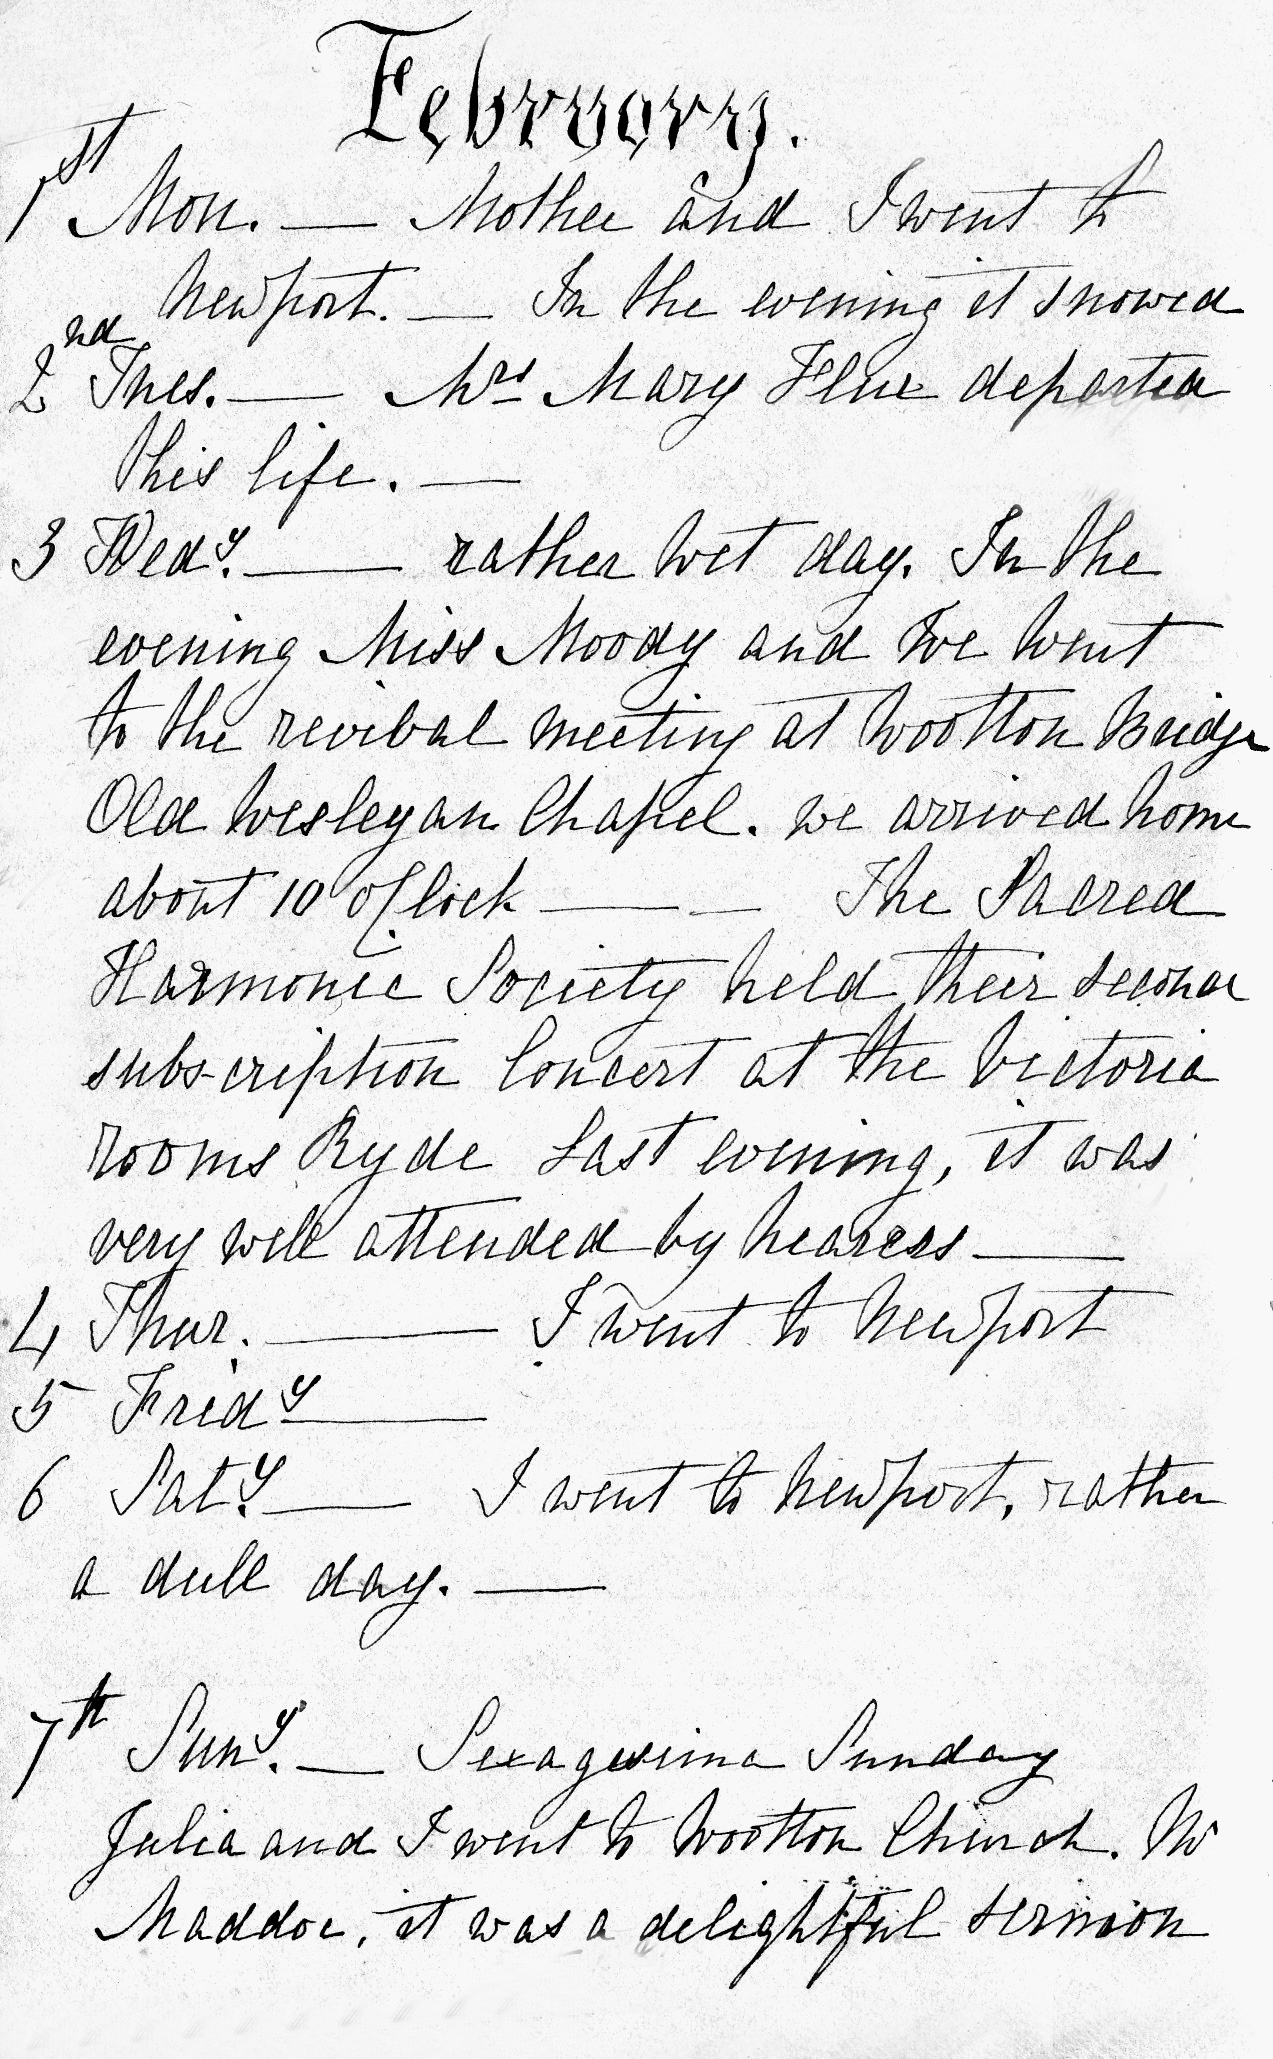 February.
1st Mon. — Mother and I went to
Newport. — In the evening it snowed
2nd Tues. — Mrs Mary Flux departed
this life. —
3 Wedy. — rather wet day. In the
evening Miss Moody and we went
to the revival meeting at Wootton Bridge
Old Wesleyan Chapel. we arrived home
about 10 o'Clock — — The Sacred
Harmonic Society held their second
subs-cription Concert at the Victoria
rooms Ryde Last evening, it was
very well attended by hearers —
4 Thur. — I went to Newport
5 Fridy —
6 Saty. — I went to Newport, rather
a dull day. —
7th Suny. — Sexagesima Sunday
Julia and I went to Wootton Church. Mr
Maddoc, it was a delightful sermon